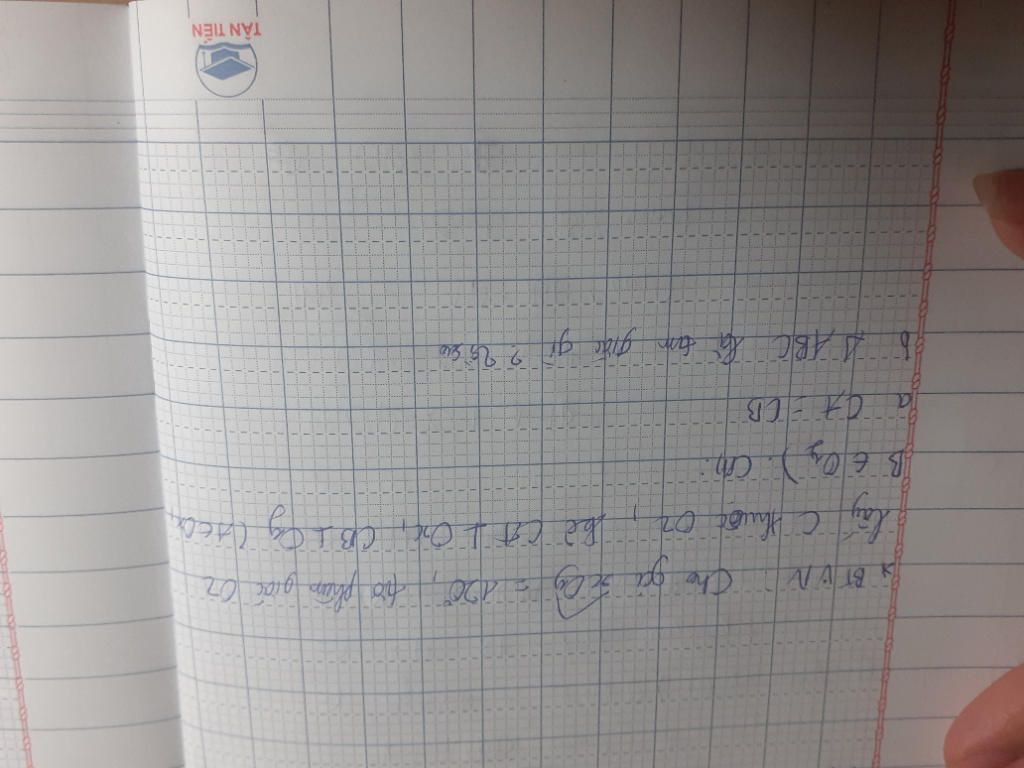 * BTVN: Cho góc xOy = 120°, tia phân giác Oz
lấy C thuộc Oz, kẻ CA ⊥ Ox, CB ⊥ Oy (A ∈ Ox,
B ∈ Oy). Cm:
a CA = CB
b Δ ABC là tam giác gì? Vì sao
TÂN TIẾN